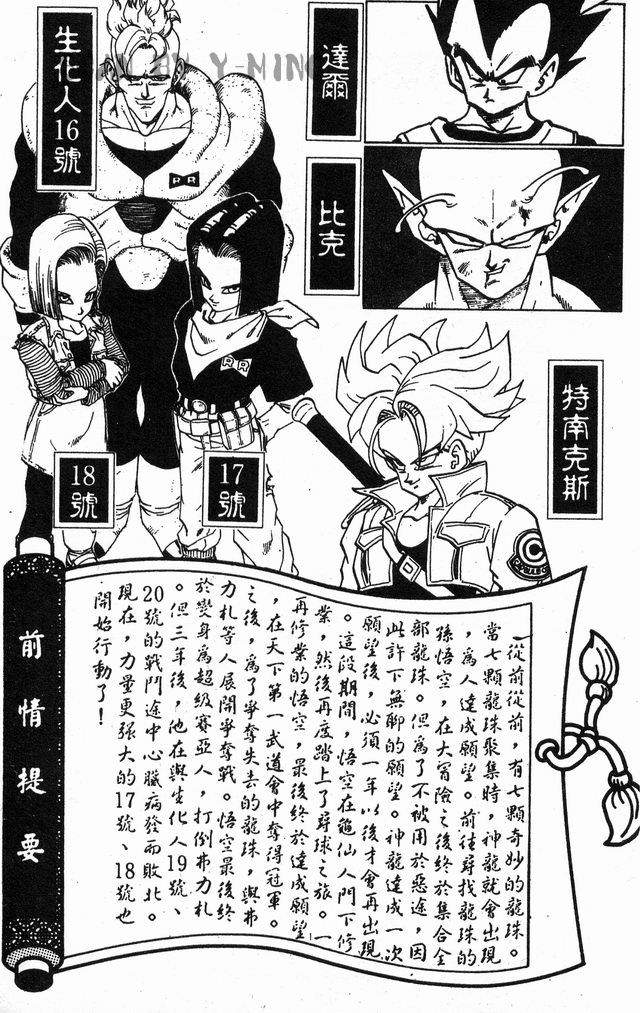 達爾
比克
生化人16號
BY Y-MING
RR
RR
18號
17號
特南克斯
前情提要
從前從前,有七顆奇妙的龍珠。
當七顆龍珠聚集時,神龍就會出現
,為人達成願望。前往尋找龍珠的
孫悟空,在大冒險之後終於集合全
部龍珠。但為了不被用於惡途,因
此許下無聊的願望。神龍達成一次
願望後,必須一年以後才會再出現
。這段期間,悟空在龜仙人門下修
業,然後再度踏上了尋球之旅。一
再修業的悟空,最後終於達成願望
,在天下第一武道會中奪得冠軍。
之後,為了爭奪失去的龍珠,與弗
力札等人展開爭奪戰。悟空最後終
於變身為超級賽亞人,打倒弗力札
。但三年後,他在與生化人19號、
20號的戰鬥途中心臟病發而敗北。
現在,力量更強大的17號、18號也
開始行動了!